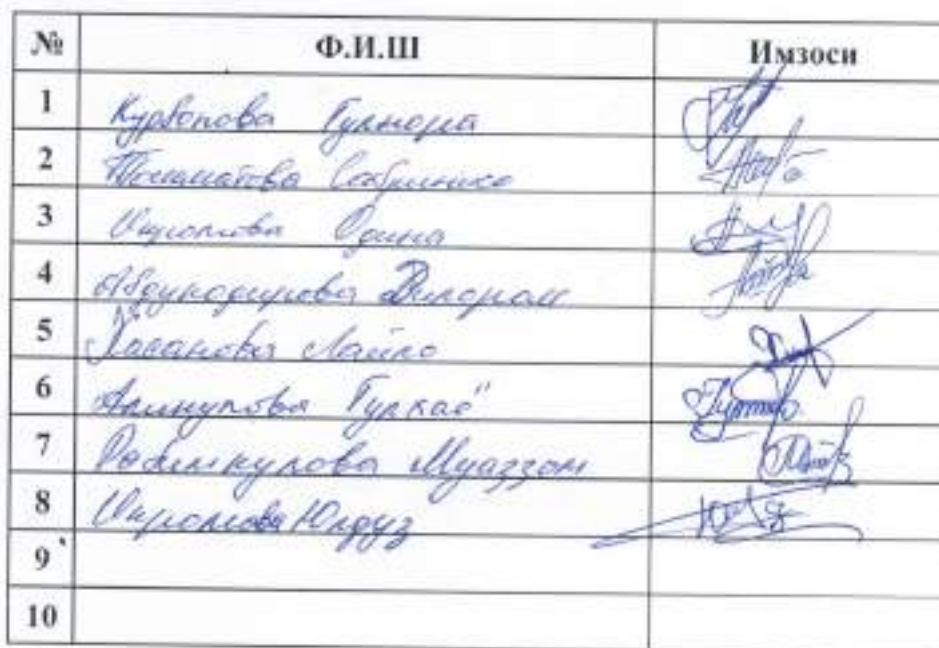 № Ф.И.Ш Имзоси
1 Курбонова Гулнора
2 Тошматова Сабринисо
3 Икромова Одина
4 Абдукодирова Дилором
5 Хасанова Лайло
6 Алинулова Гулхаё
7 Рахимкулова Муаззам
8 Икромова Юлдуз
9
10